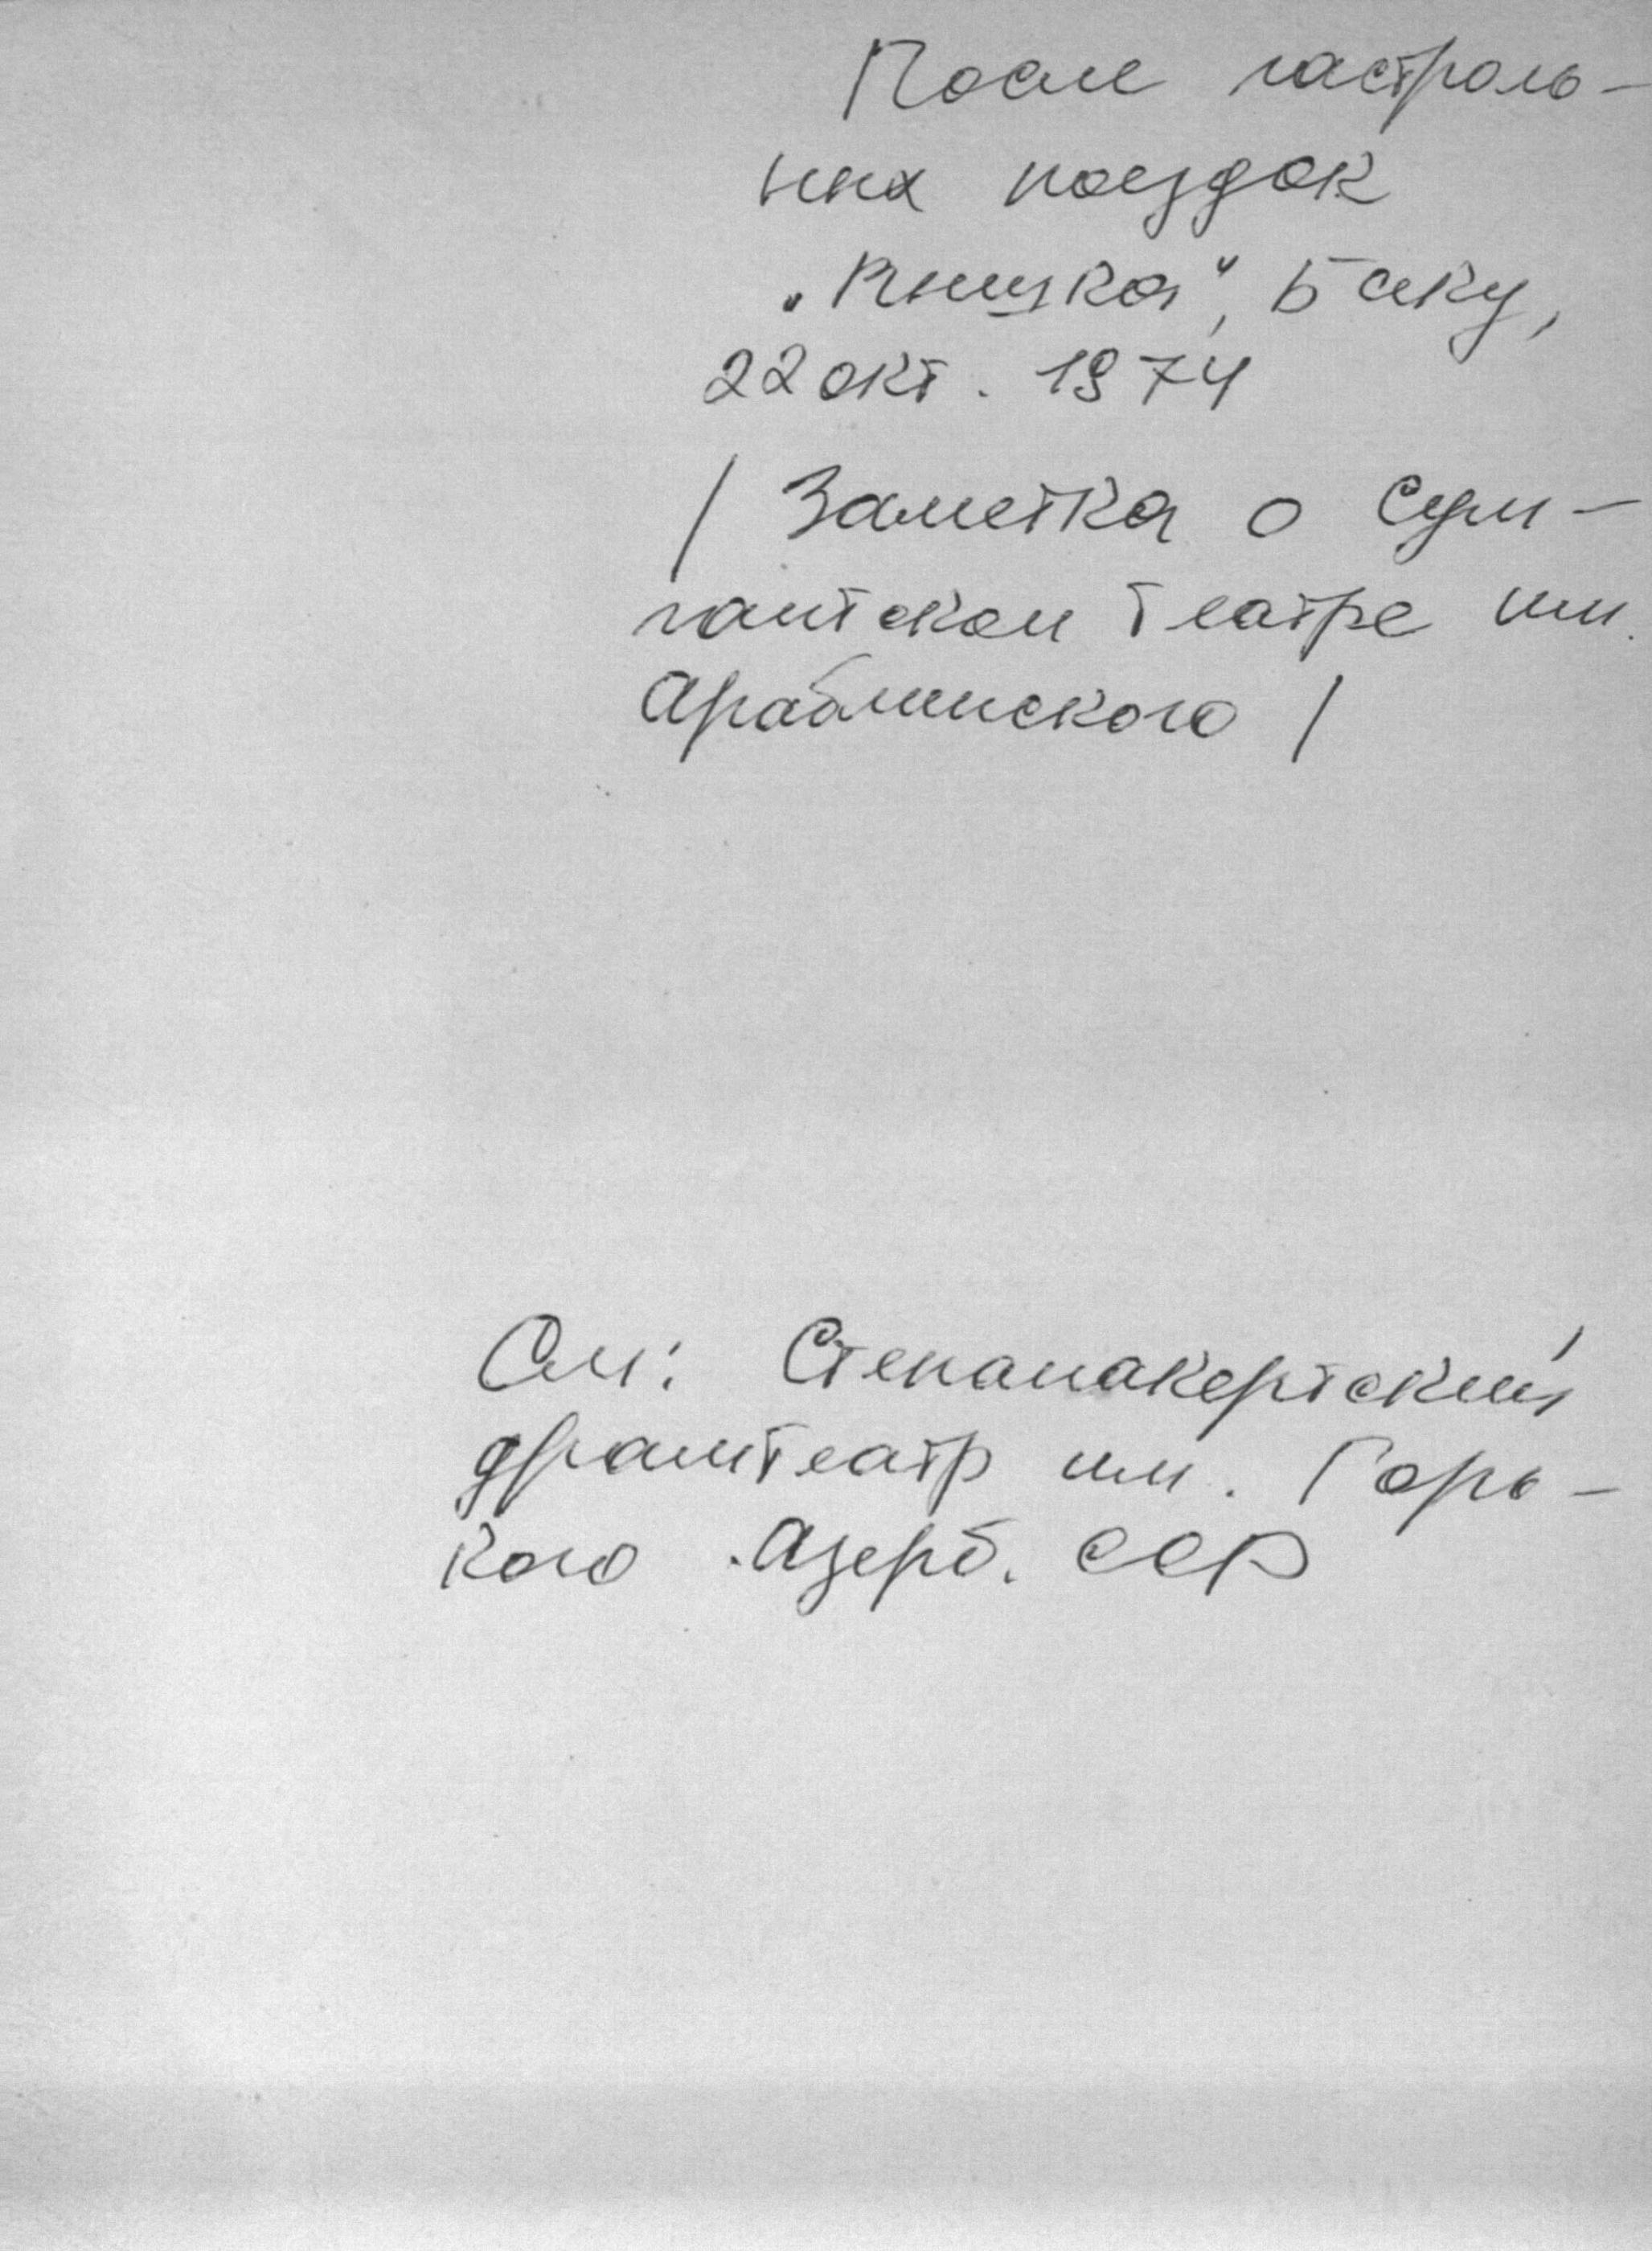 После гастроль-
ных поездок
„Вышка", Баку,
22 окт. 1974
/ Заметка о Сум-
гаитском театре им.
Араблинского /
См: Степанакертский
драмтеатр им. Горь-
кого . Азерб. ССР